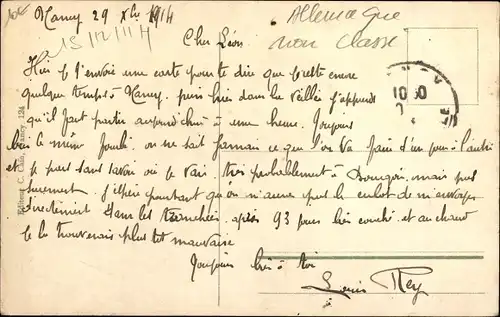 Nancy 29 Xbre 1914
15/12/14
Allemagne
non classé
Cher Léon.
Hier je t'envoie une carte pour te dire que je reste encore
quelque temps à Nancy, puis hier dans la veillée j'apprends
qu'il faut partir aujourd'hui à une heure. Toujours
bien le même fourbi on ne sait jamais ce que l'on va faire d'un jour à l'autre
et je pars sans savoir où je vais. Très probablement à mais pas
surement. J'espère pourtant qu'on n'aura pas le culot de m'envoyer
directement dans les tranchées, après 93 jours bien couché et au chaud
je la trouverais plutot mauvaise
Toujours bien à toi
Louis Rey
10 30
Nancy 124